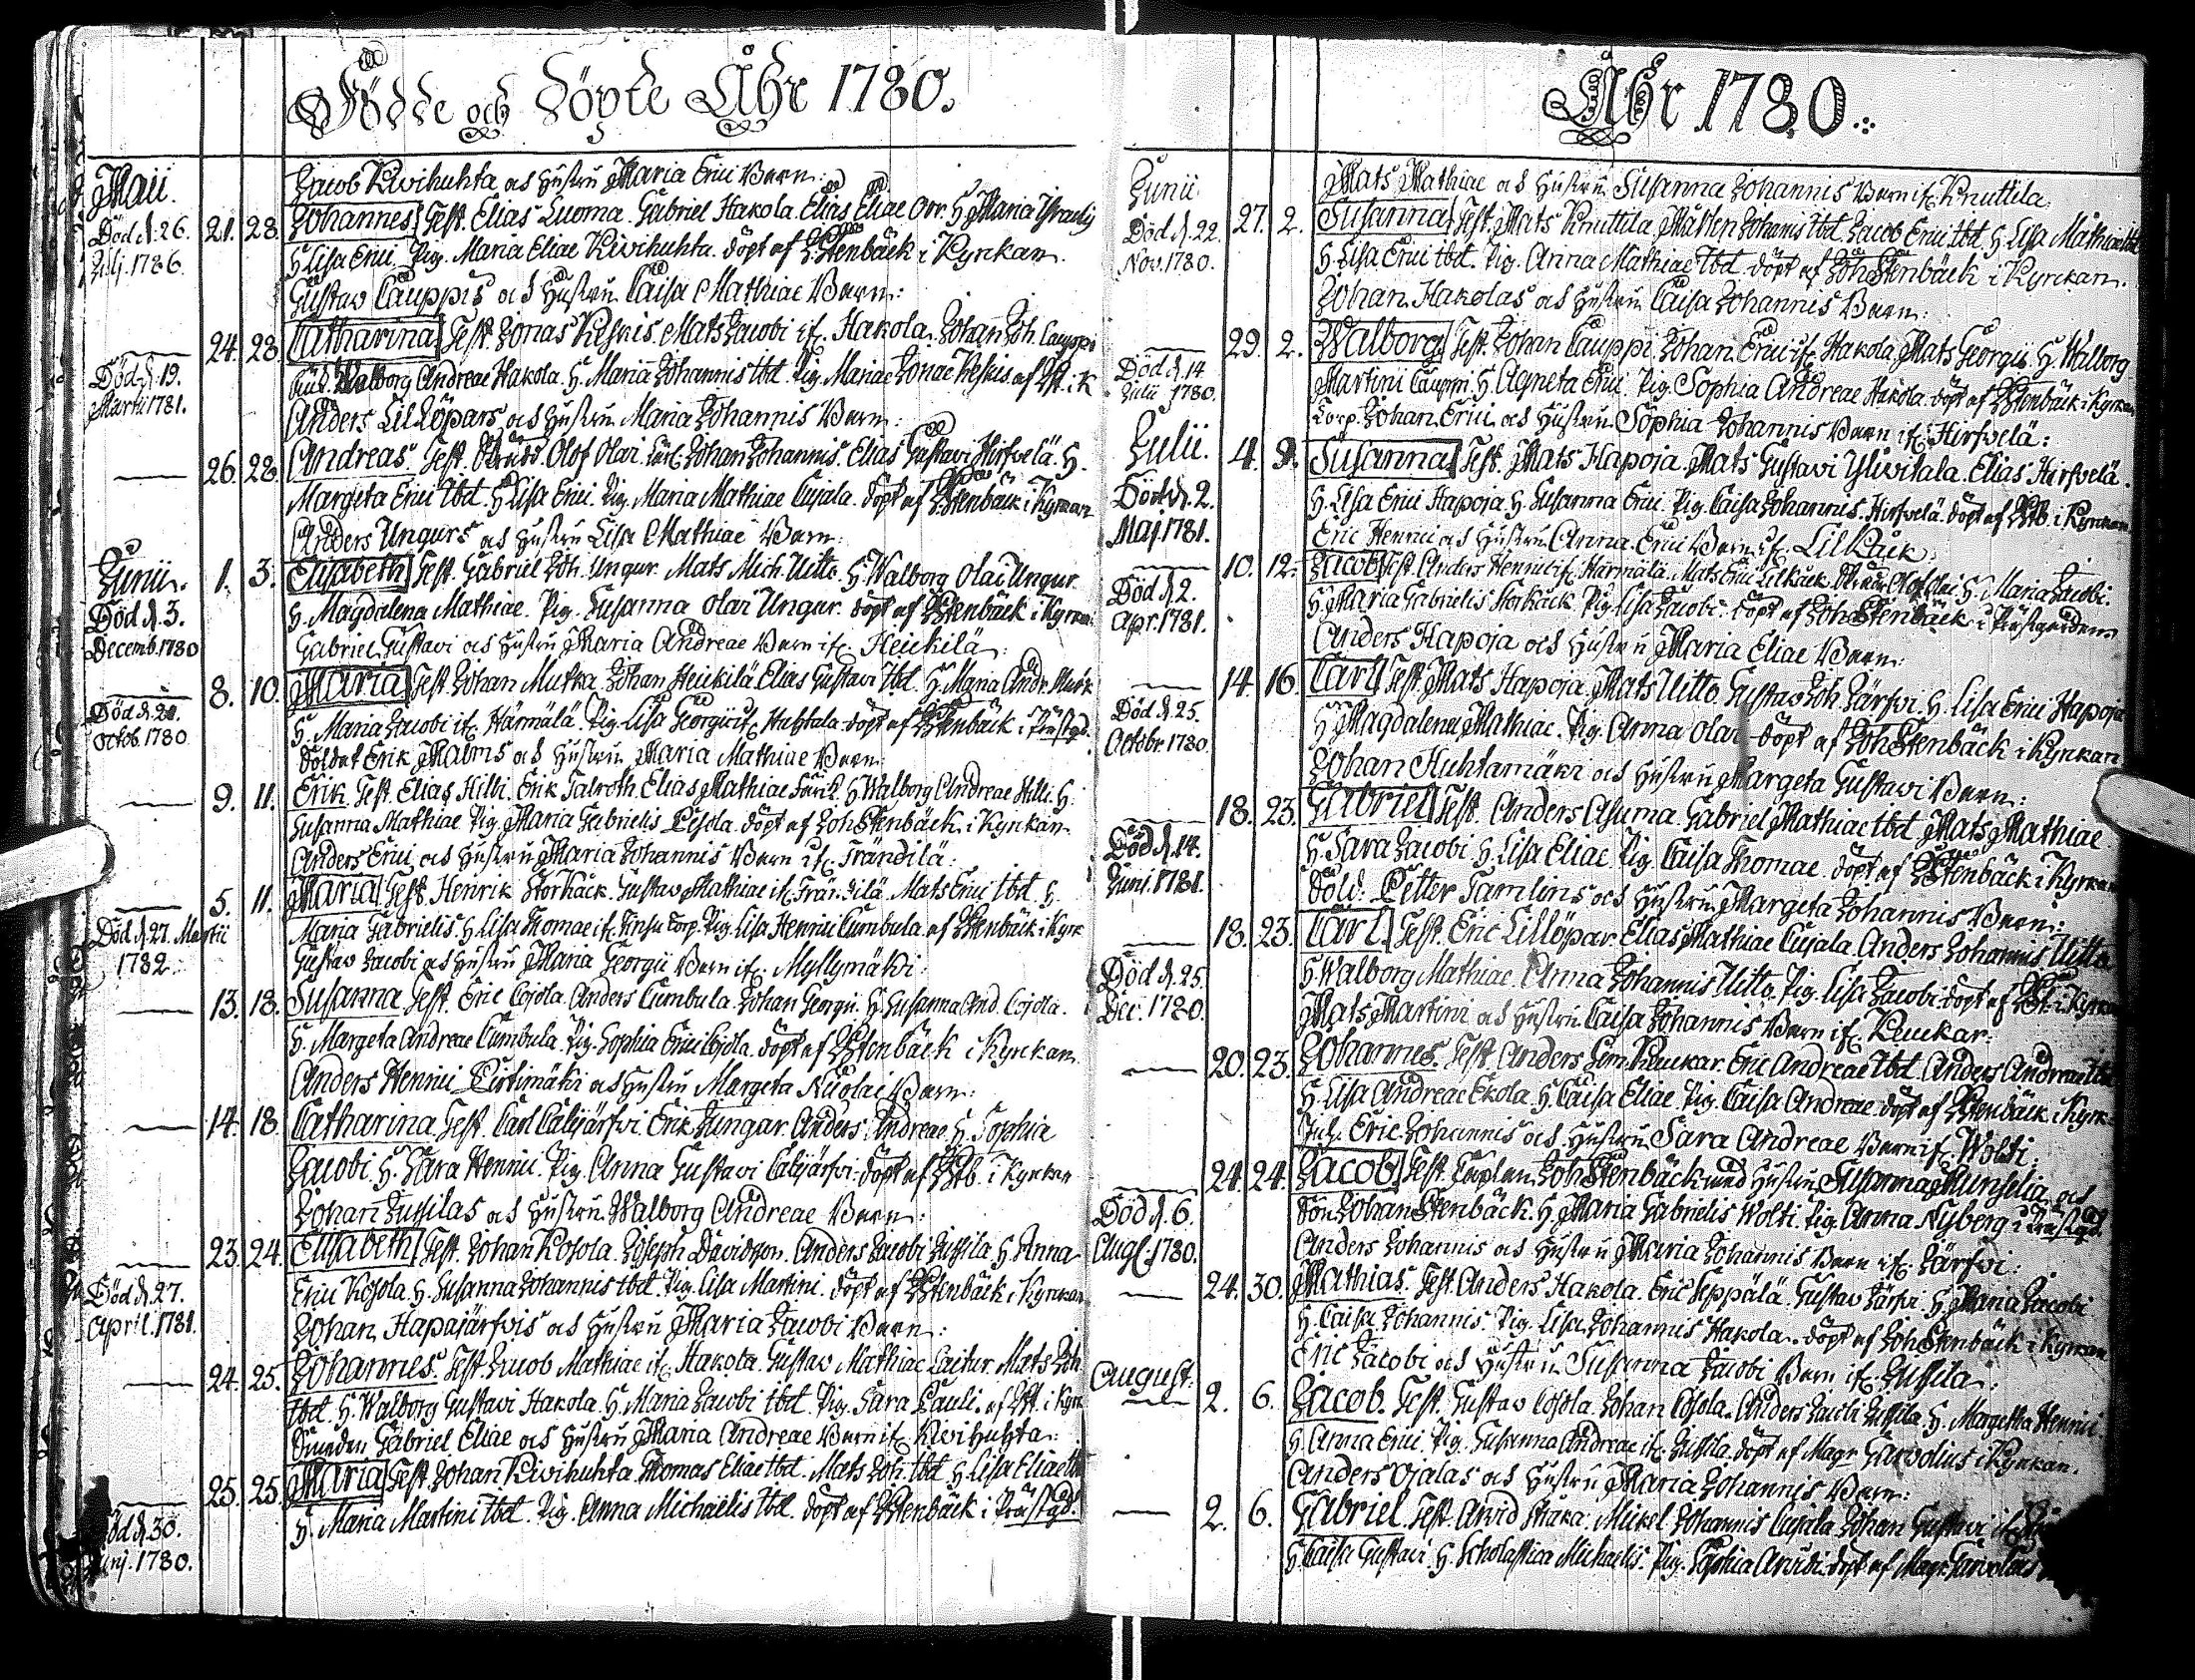 Födde och Döpte Åhr 1780.
Maii.
Jacob Kivihuhta och Hustru Maria Erici Barn:
Död d. 26. Julj. 1786.
21. 28. Johannes Test. Elias Luoma. Gabriel Hakola. Elias Eliae Orr. H. Maria
H. Lisa Erici. Pig. Maria Eliae Kivihuhta. döpt af J. Stenbäck i Kyrckan.
Gustav Cauppis och Hustru Caisa Mathiae Barn:
24. 28. Catharina Test. Jonas Keskis. Mats Jacobi if. Hakola. Johan Joh. Cauppi
Död d. 19. Martii 1781.
Walborg Andreae Hakola. H. Maria Johannis Ibd. Pig. Maria Jonae Keskis. af J. St. i K
Anders Lillöpars och Hustru Maria Johannis Barn:
26. 28. Andreas Test. Olof Olai. Carl Johan Johannis. Elias Gustavi Hirfvelä. H.
Margeta Erici Ibd. H Lisa Erici. Pig. Maria Mathiae Cujala. döpt af J. Stenbäck i Kyrckan
Anders Ungurs och Hustru Lisa Mathiae Barn:
Junii. 1. 3. Elisabeth Test. Gabriel Joh. Ungur. Mats Mich. Uitto. H. Walborg Olai Ungur.
Död d. 3. Decemb. 1780
H. Magdalena Mathiae. Pig. Susanna Olai Ungur. döpt af J. Stenbäck i Kyrckan
Gabriel Gustavi och Hustru Maria Andreae Barn if. Heickilä:
8. 10. Maria Test. Johan Mutka. Johan Heickilä. Elias Gustavi Ibd. H. Maria Andr.
Octob. 1780
H. Maria Jacobi if. Härmälä. Pig. Lisa Georgii if. Huhtala. döpt af J. Stenbäck i Prästgd.
Soldat Erik Malms och Hustru Maria Mathiae Barn:
9. 11. Erik. Test. Elias Hilli. Erik Talroth. Elias Mathiae H. Walborg Andreae Hilli. H.
Susanna Mathiae. Pig. Maria Gabrielis Pesola. döpt af Joh Stenbäck i Kyrckan.
Anders Erici och Hustru Maria Johannis Barn if. Trändilä:
5. 11. Maria Test. Henrik Storkåck. Gustav Mathiae if. Trändilä. Mats Erici Ibd. H.
Död d. 27. Martii 1782.
Maria Gabrielis. H. Lisa Thomae if. Torp. Pig. Lisa Henrici Cumbula. af J. Stenbäck i Kyrk
Gustav Jacobi och Hustru Maria Georgii Barn if. Myllymäki:
13. 18. Susanna. Test. Eric Cojola. Anders Cumbula. Johan Georgii. H. Susanna And. Cojola.
H. Margeta Andreae Cumbula. Pig. Sophia Erici Cojola. döpt af J. Stenbäck i Kyrckan
Anders Henrici Pirtimäki och Hustru Margeta Nicolai Barn:
14. 18. Catharina Test. Carl Calijärfvi. Erik Jungar. Anders Andreae. H. Sophia
Jacobi. H. Sara Henrici. Pig. Anna Gustavi Calijärfvi. döpt af J. Stb. i Kyrckan
Johan Jussilas och Hustru Walborg Andreae Barn:
23. 24. Elisabeth Test. Johan Kosola. Joseph Davidson. Anders Jacobi Jussila. H. Anna
Död d. 27. April. 1781.
Erici Kosola. H. Susanna Johannis Ibd. Pig. Lisa Martini. döpt af J. Stenbäck i Kyrckan
Johan Hapajärfvis och Hustru Maria Jacobi Barn:
24. 25. Johannes. Test. Jacob Mathiae if. Hakola. Gustav Mathiae Mats Joh.
Ibd. H. Walborg Gustavi Hakola. H. Maria Jacobi Ibd. Pig. Sara Pauli. af J. St. i Kyrk
Gabriel Eliae och Hustru Maria Andreae Barn if. Kivihuhta:
25. 25. Maria Test. Johan Kivihuhta. Thomas Eliae Ibd. Mats Joh. Ibd. H. Lisa Eliae Ibd
Död d. 30. Junj. 1780.
H. Maria Martini Ibd. Pig. Anna Michaelis Ibd. döpt af J. Stenbäck i Prästgd.
Åhr 1780.
Junii.
Mats Mathiae och Hustru Susanna Johannis Barn if. Knuttila.
Död d. 22. Nov. 1780.
27. 2. Susanna Test. Mats Knuttila. Mårten Johannis Ibd. Jacob Erici Ibd. H. Lisa Mathiae Ibd
H. Lisa Erici Ibd. Pig. Anna Mathiae Ibd. döpt af Joh Stenbäck i Kyrckan.
Johan Hakolas och Hustru Caisa Johannis Barn:
29. 2. Walborg Test. Johan Cauppi. Johan Erici if. Hakola. Mats Georgii. H. Walborg
Död d. 14 Julii 1780.
Martini Cauppi. H. Agneta Erici. Pig. Sophia Andreae Hakola. döpt af J. Stenbäck i Kyrckan
Corp. Johan Erici och Hustru Sophia Johannis Barn if. Hirfvelä:
Julii. 4. 9. Susanna Test. Mats Hapoja. Mats Gustavi Ylivitala. Elias Hirfvelä.
Död d. 2. Maj. 1781.
H. Lisa Erici Hapoja. H. Susanna Erici. Pig. Caisa Johannis Hirfvelä. döpt af J. Stb. i Kyrckan
Eric Henrici och Hustru Anna Erici Barn if. Lilkåck:
10. 12. Jacob Test. Anders Henrici if. Härmälä. Mats Erici Lilkåck. Olof Olai. H. Maria Jacobi.
Död d. 2. Apr. 1781.
H. Maria Gabrielis Storkåck. Pig. Lisa Jacobi. döpt af Joh Stenbäck i Prästgarden
Anders Hapoja och Hustru Maria Eliae Barn:
14. 16. Carl Test. Mats Hapoja. Mats Uitto. Gustav Joh. Järfvi. H. Lisa Erici Hapoja
Död d. 25. Octobr. 1780.
H. Magdalena Mathiae. Pig. Anna Olai. döpt af Joh Stenbäck i Kyrckan
Johan Huhtamäki och Hustru Margeta Gustavi Barn:
18. 23. Gabriel Test. Anders Asuma. Gabriel Mathiae Ibd. Mats Mathiae.
Död d. 14. Junj. 1781.
H. Sara Jacobi. H. Lisa Eliae. Pig. Caisa Thomae. döpt af J. Stenbäck i Kyrckan
Sold. Petter Tamlins och Hustru Margeta Johannis Barn:
18. 23. Carl. Test. Eric Lillöpar. Elias Mathiae Cujala. Anders Johannis Uitto
Död d. 25. Dec. 1780.
H. Walborg Mathiae. Anna Johannis Uitto. Pig. Lisa Jacobi. döpt af J. St. i Kyrckan
Mats Martini och Hustru Caisa Johannis Barn if. Kauckar:
20. 23. Johannes. Test. Anders Sim. Kauckar. Eric Andreae Ibd. Anders Andreae Ibd.
H. Lisa Andreae Ekola. H. Caisa Eliae. Pig. Caisa Andreae. döpt af J. Stenbäck i Kyrk.
Eric Johannis och Hustru Sara Andreae Barn if. Wolti:
24. 24. Jacob Test. Caplan Joh Stenbäck med Hustru Susanna Munselia och
Död d. 6. Aug. 1780.
Son Johan Stenbäck. H. Maria Gabrielis Wolti. Pig. Anna Nyberg i Prästgd.
Anders Johannis och Hustru Maria Johannis Barn if. Järfvi:
24. 30. Mathias. Test. Anders Hakola. Eric Seppälä. Gustav Järfvi. H. Maria Jacobi
H. Caisa Johannis. Pig. Lisa Johannis Hakola. döpt af Joh Stenbäck i Kyrckan
Eric Jacobi och Hustru Susanna Jacobi Barn if. Jussila:
August: 2. 6. Jacob. Test. Gustav Cosola. Johan Cosola. Anders Jacobi Jussila. H. Margetha Henrici.
H. Anna Erici. Pig. Susanna Andreae if. Jussila. döpt af Magr Garvolius i Kyrckan.
Anders Ojalas och Hustru Maria Johannis Barn:
2. 6. Gabriel. Test. Arvid Straka. Mickel Johannis Cujala. Johan Gustavi if.
H. Caisa Gustavi. H. Scholastica Michaelis. Pig. Sophia Arvidi. döpt af Magr. Garvolius